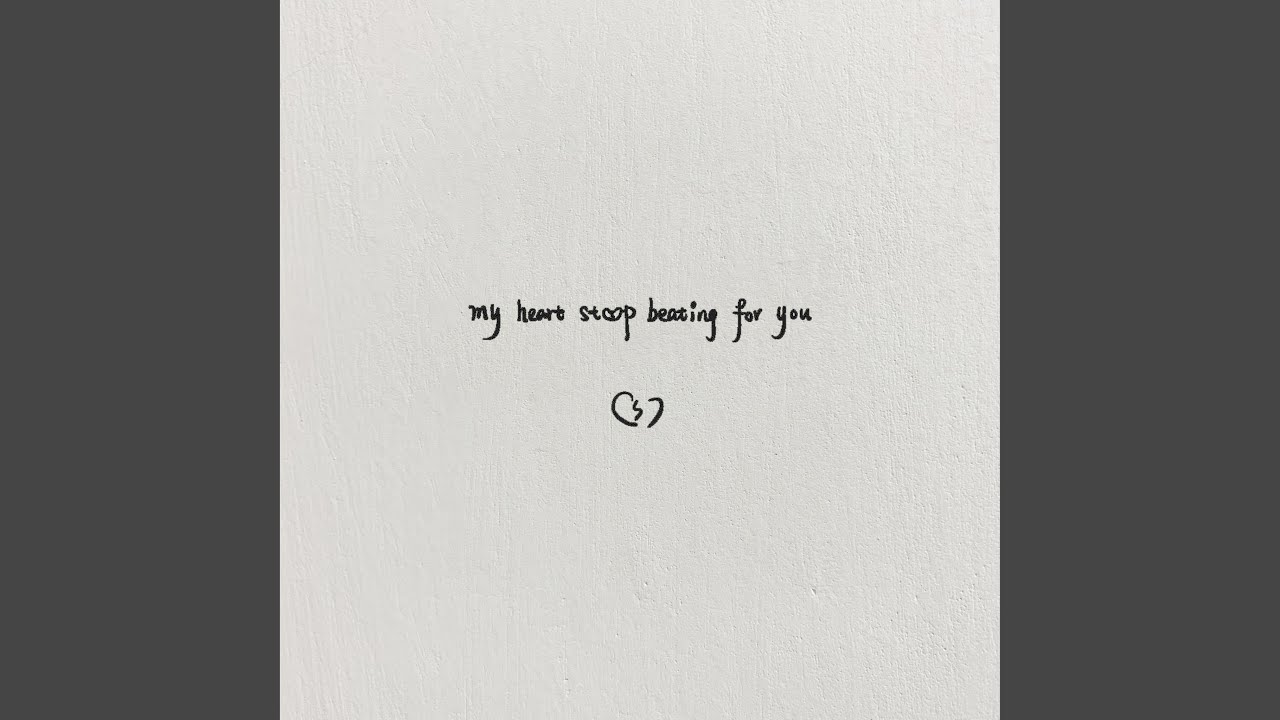 my heart stop beating for you